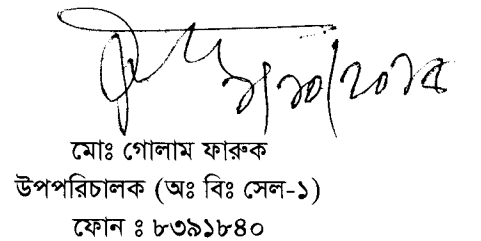 মোঃ গোলাম ফারুক
উপপরিচালক (অঃ বিঃ সেল-১)
ফোন ঃ ৮৩৯১৮৪০